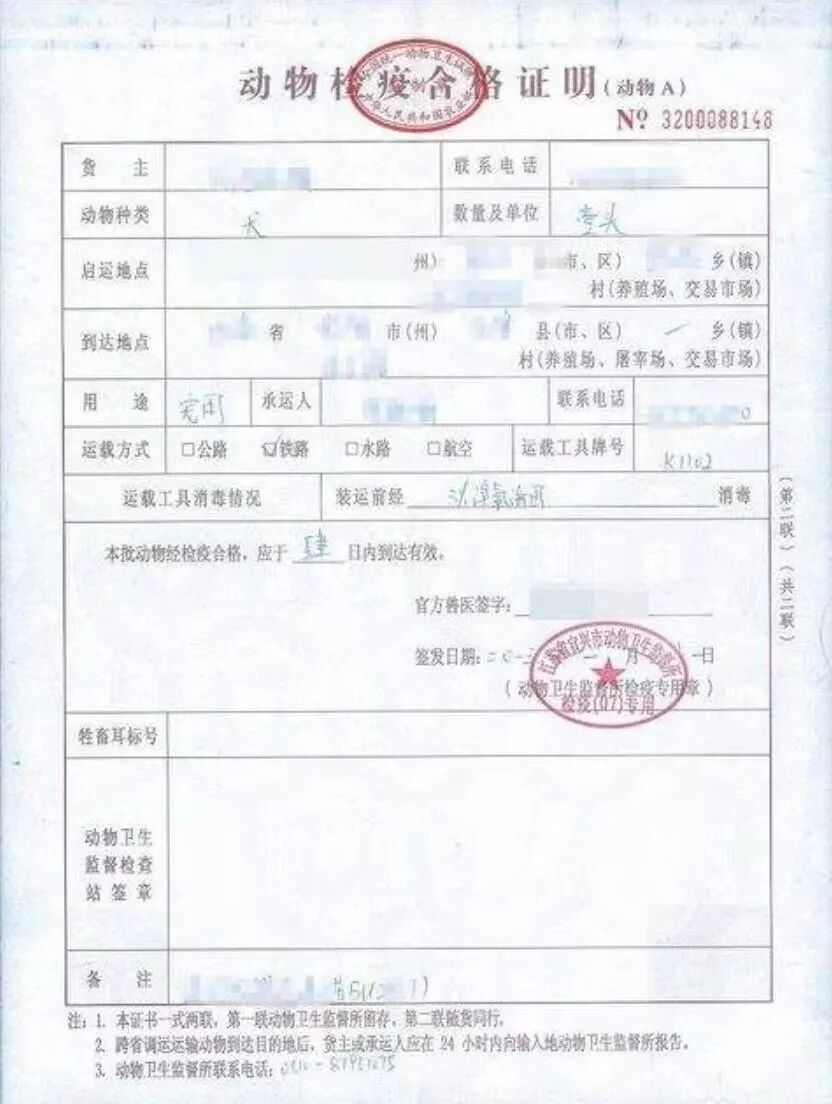 动物检疫合格证明(动物A)
№ 3200088148
货主 联系电话
动物种类 犬 数量及单位 壹头
启运地点 州) 市、区) 乡(镇)
村(养殖场、交易市场)
到达地点 省 市(州) 县(市、区) 乡(镇)
村(养殖场、屠宰场、交易市场)
用途 承运人 联系电话
运载方式 □公路 ☑铁路 □水路 □航空 运载工具牌号 K1102
运载工具消毒情况 装运前经 消毒
本批动物经检疫合格，应于 肆 日内到达有效。
官方兽医签字：
签发日期： 月 日
(动物卫生监督所检疫专用章)
江苏省宜兴市动物卫生监督所
检疫(07)专用
牲畜耳标号
动物卫生
监督检查
站签章
备注
注：1. 本证书一式两联，第一联动物卫生监督所留存，第二联随货同行。
2. 跨省调运运输动物到达目的地后，货主或承运人应在 24 小时内向输入地动物卫生监督所报告。
3. 动物卫生监督所联系电话：
(第二联)(共二联)